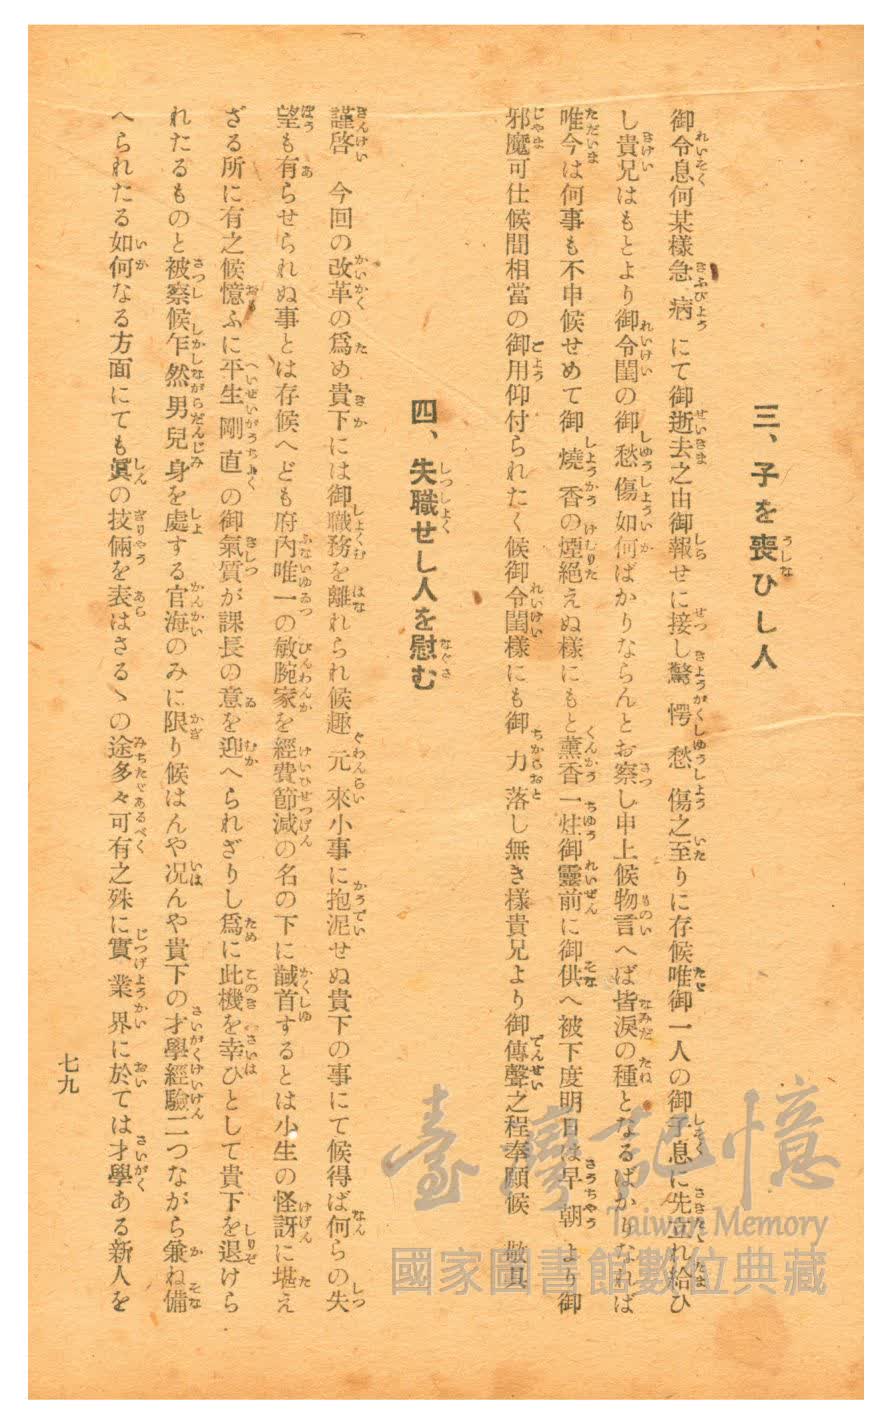 三、子を喪ひし人
御令息何某樣急病にて御逝去之由御報せに接し驚愕愁傷之至りに存候唯御一人の御子息に先立れ給ひ
し貴兄はもとより御令閨の御愁傷如何ばかりならんとお察し申上候物言へば皆淚の種となるばかりなれば
唯今は何事も不申候せめて御燒香の煙絕えぬ樣にもと薰香一炷御靈前に御供へ被下度明日は早朝より御
邪魔可仕候間相當の御用仰付られたく候御令閨樣にも御力落し無き樣貴兄より御傳聲之程奉願候　敬具
四、失職せし人を慰む
謹啓　今回の改革の爲め貴下には御職務を離れられ候趣元來小事に抱泥せぬ貴下の事にて候得ば何らの失
望も有らせられぬ事とは存候へども府內唯一の敏腕家を經費節減の名の下に馘首するとは小生の怪訝に堪え
ざる所に有之候憶ふに平生剛直の御氣質が課長の意を迎へられざりし爲に此機を幸ひとして貴下を退けら
れたるものと被察候乍然男兒身を處する官海のみに限り候はんや况んや貴下の才學經驗二つながら兼ね備
へられたる如何なる方面にても眞の技倆を表はさるゝの途多々可有之殊に實業界に於ては才學ある新人を
七九
臺灣記憶
Taiwan Memory
國家圖書館數位典藏